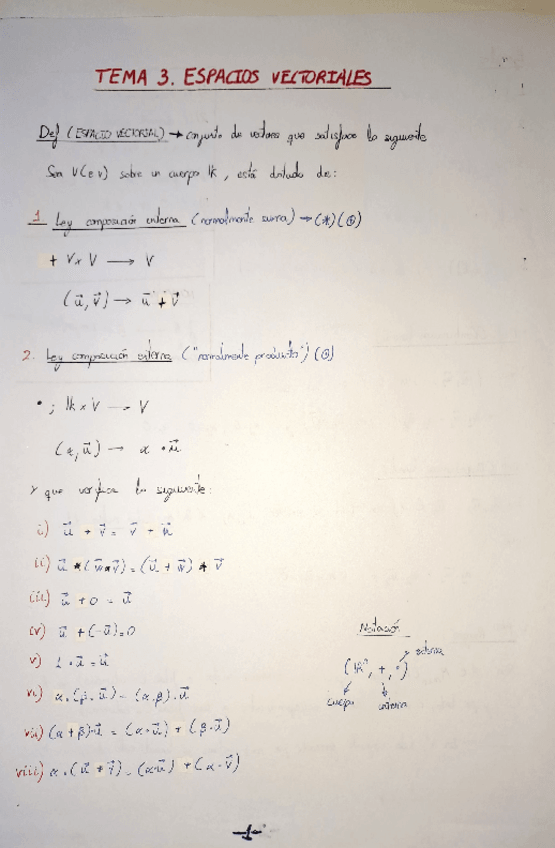 TEMA 3. ESPACIOS VECTORIALES
Def (ESPACIO VECTORIAL) → conjunto de vectores que satisface lo siguiente
Sea V(e.v) sobre un cuerpo lk, está dotado de:
1. Ley composición interna (normalmente suma) → (*) (⊕)
+ V x V → V
(u⃗, v⃗) → u⃗ + v⃗
2. Ley composición externa ("normalmente producto") (⊙)
• ; lk x V → V
(α, u⃗) → α · u⃗
y que verifica lo siguiente:
i) u⃗ + v⃗ = v⃗ + u⃗
ii) u⃗ + (w⃗ + v⃗) = (u⃗ + w⃗) + v⃗
iii) u⃗ + 0 = u⃗
iv) u⃗ + (-u⃗) = 0
v) 1 · u⃗ = u⃗
vi) α · (β · u⃗) = (α · β) · u⃗
vii) (α + β) · u⃗ = (α · u⃗) + (β · u⃗)
viii) α · (u⃗ + v⃗) = (α · u⃗) + (α · v⃗)
Notación
externa
(lRⁿ, +, ·)
cuerpo interna
-1-